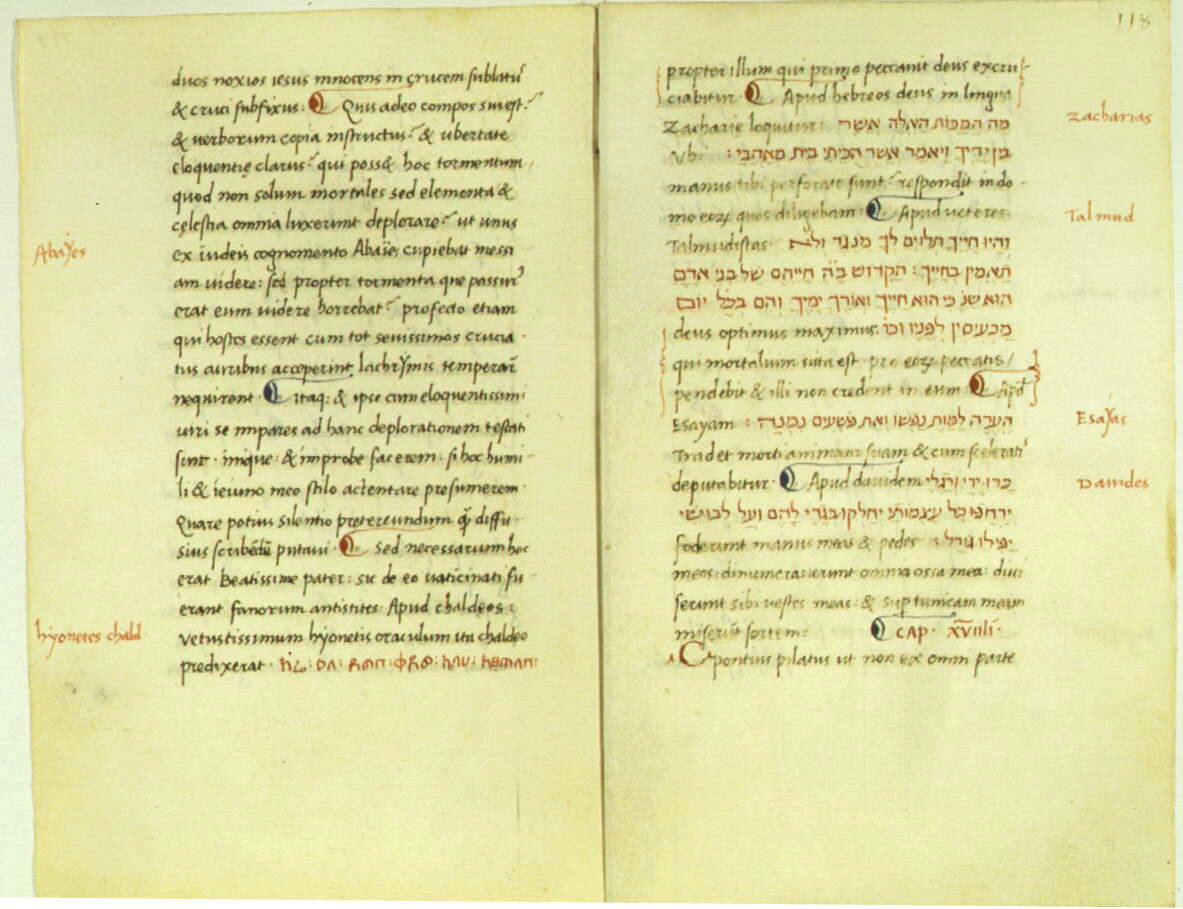 duos noxios iesus innocens in crucem sublatu᷈
& cruci subfixus: Q Quis adeo compos sui est?
& uerborum copia instructus? & ubertate
eloquentię clarus? qui poss& hoc tormentum,
quod non solum mortales sed elementa &
cęlestia omnia luxerunt deplorare? ut unus
Abaÿes
ex iudeis cognomento Abaïes cupiebat messi
am uidere: sed propter tormenta que passur᾽
erat eum uidere horrebat? profecto etiam
qui hostes essent cum tot seuissimos crucia
tus auribus acceperint, lachrÿmis temperar̃
nequirent. Q itaq: & ipse cum eloquentissimi
uiri se impares ad hanc deplorationem testati
sint. inique & improbe facerem. si hoc humi
li & ieiuno meo stilo actentare presumerem.
Quare potius silentio pretereundum q̃ diffu
sius scribẽdũ putaui. Q Sed necessarum hoc
erat Beatissime pater: sic de eo uaticinati fu
erant fanorum antistites. Apud chaldeos:
hÿonetes chald
Vetustissimum hÿonetis oraculum ita chaldeo
predixerat.
118
propter illum qui primo peccauit deus excru
ciabitur. Q Apud hebreos deus in lingua
Zacharias
Zacharie loquitur: מה המכות האלה אשר
בין ידיך ויאמר אשר הכיתי בית מאהבי:
Vbi manus tibi perforate sunt? respondit in do
Talmud
mo eoꝝ quos diligebam. Q Apud ueteres
Talmudistas והיו חייך תלוים לך מנגד ולא
תאמין בחייך: הקדוש ב"ה חייהם של בני אדם
הוא שנ כי הוא חייך ואורך ימיך והם בכל יום
deus optimus maximus. מכעיסין לפניו וכו
qui mortalum uita est. pro eoꝝ peccatis
pendebit & illi non credent in eum Q Apd̃
Esaÿas
Esaÿam: הערה למות נפשו ואת פשעים נמנה:
Tradet morti animam suam & cum scelerati᾽
Dauides
deputabitur. Q Apud dauidem כרו ידי ורגלי
יחלקו בגדי להם ועל לבושי
foderunt manus meas & pedes יפילו גורל:
meos dinumerauerunt omnia ossa mea: diui
serunt sibi uestes meas: & sup tunicam meam
miserũt sortem: Q CAP. XVIIII.
C pontius pilatus ut non ex omni parte